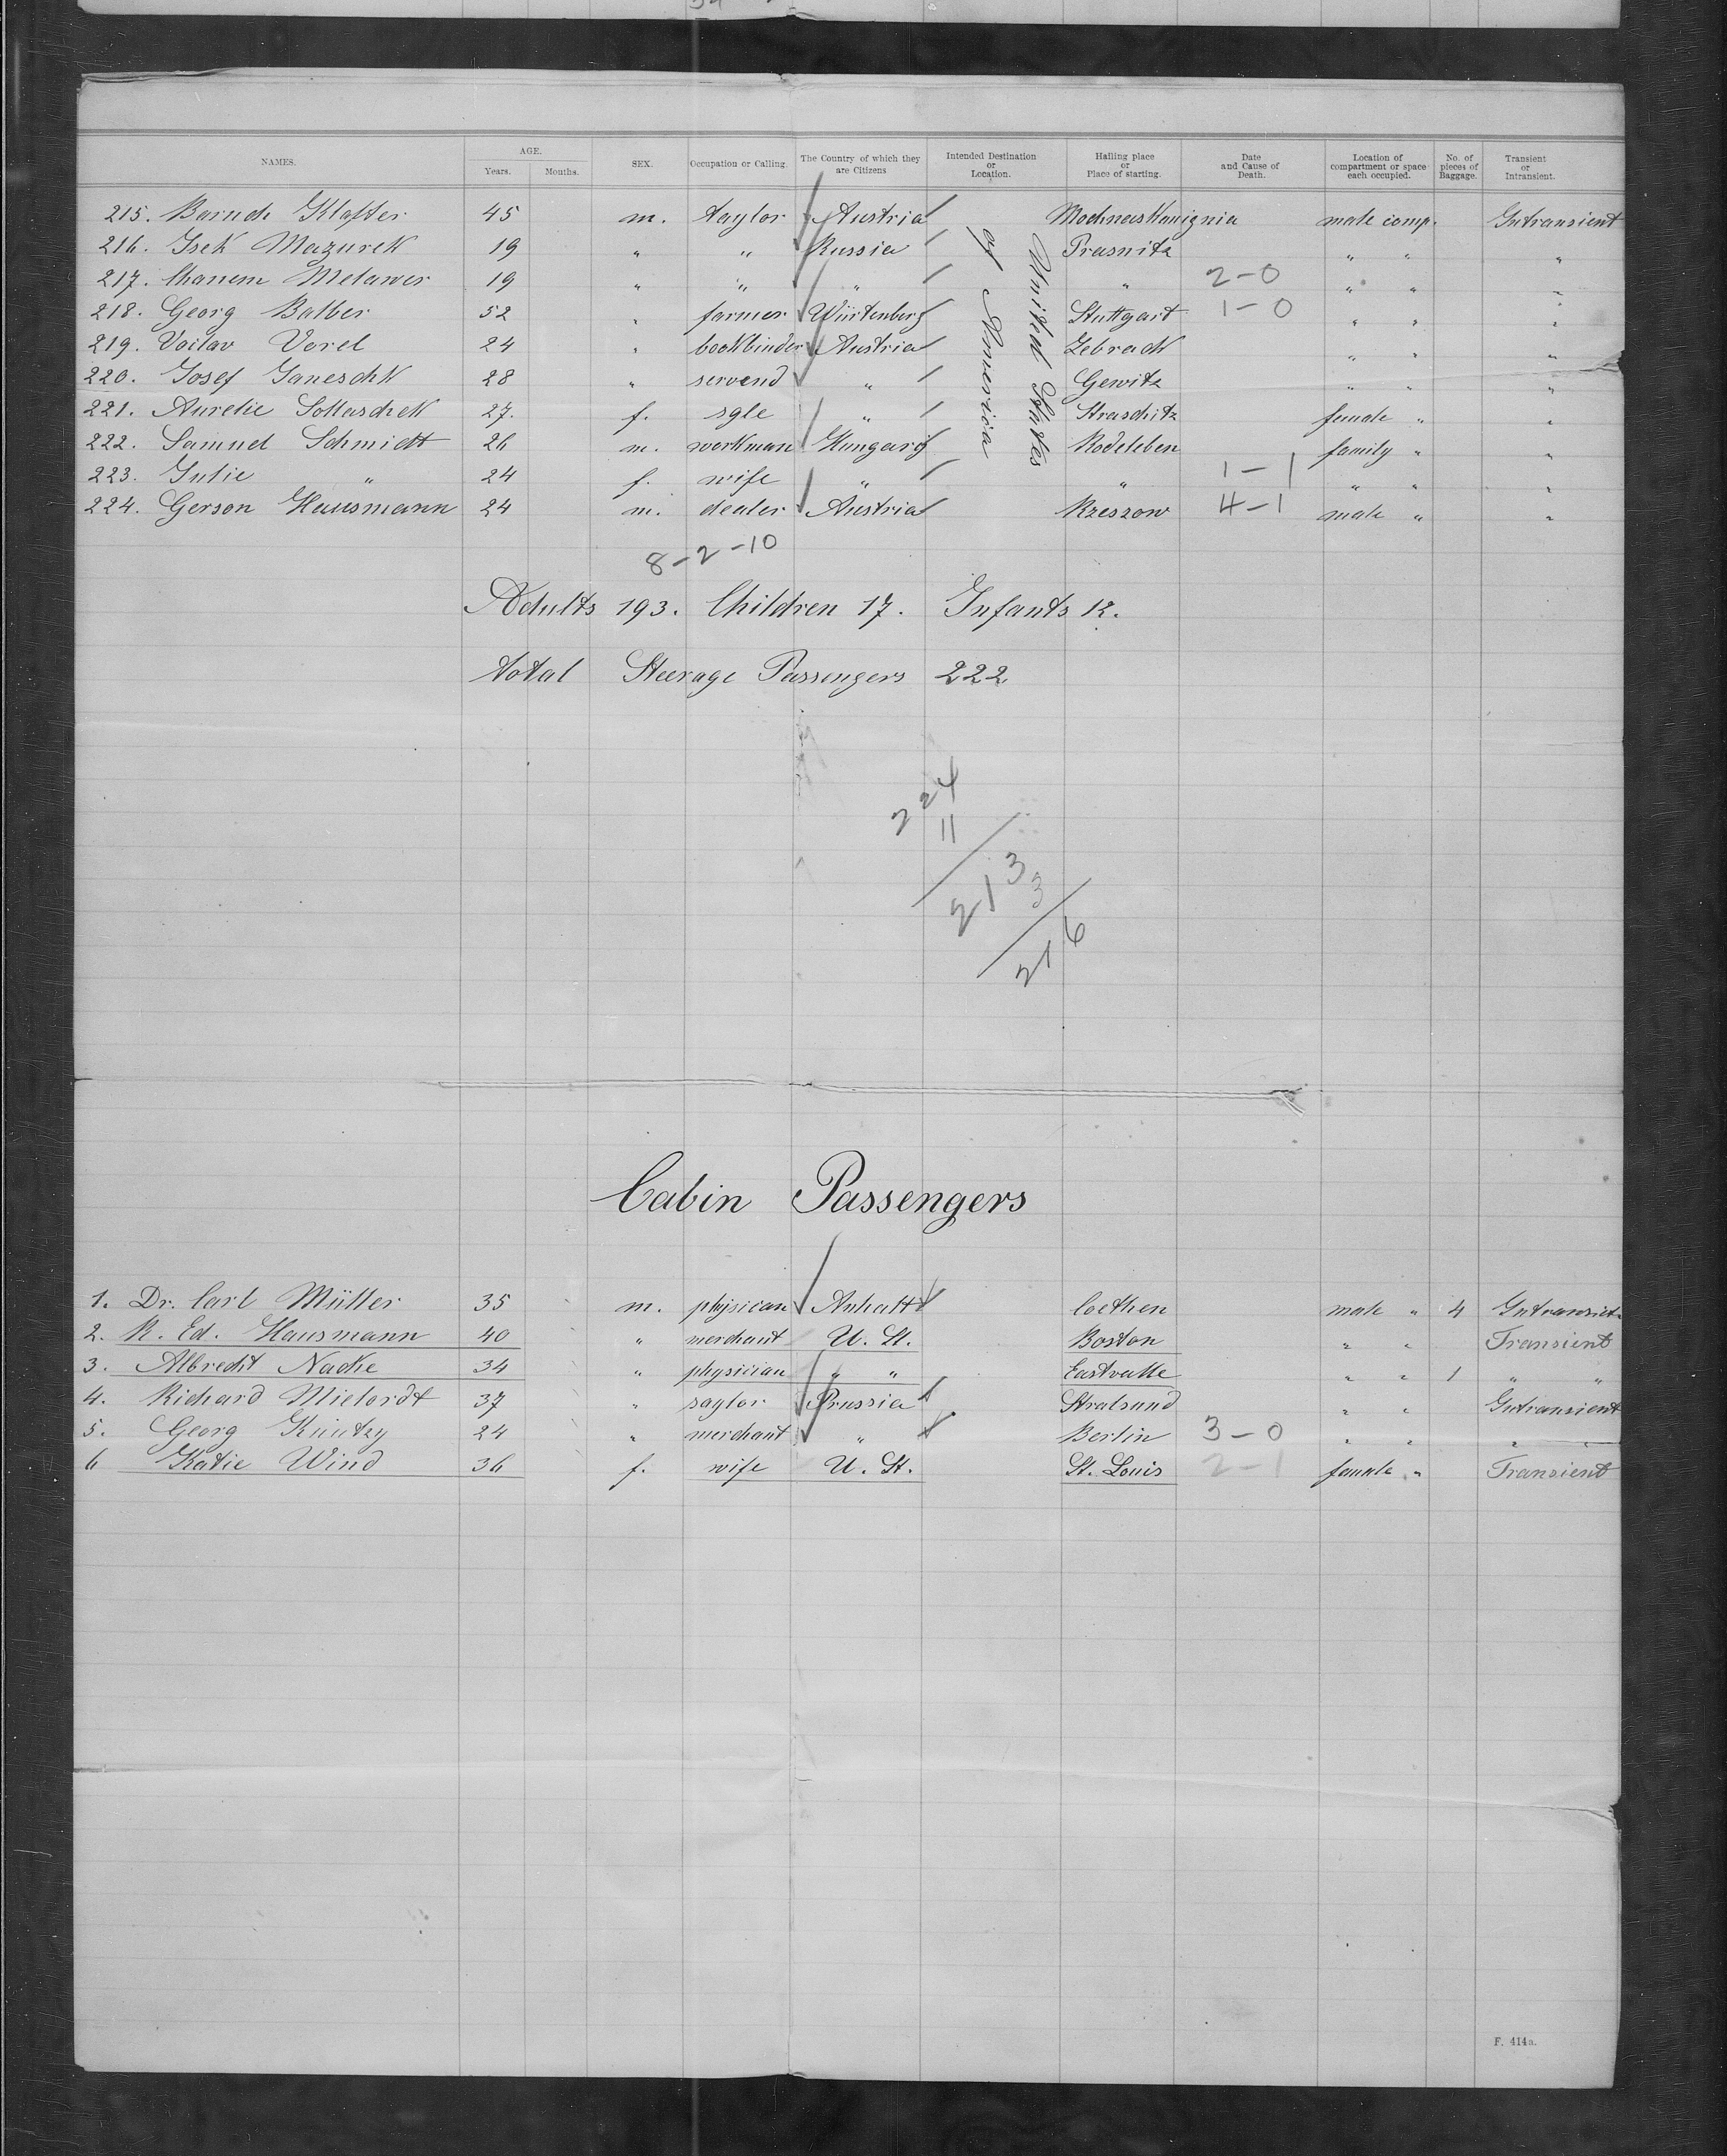 NAMES. AGE. Years. Months. SEX. Occupation or Calling. The Country of which they are Citizens Intended Destination or Location. Hailing place or Place of starting. Date and Cause of Death. Location of compartment or space each occupied. No. of pieces of Baggage. Transient or Intransient.
215. Baruch Klafter 45 m. taylor Austria male comp. Intransient
216. Isek Mazurek 19 " " Russia Prasnitz " " "
217. Chanem Melawer 19 " " " " 2-0 " " "
218. Georg Balber 52 " farmer Würtenberg Stuttgart 1-0 " " "
219. Voilav Vorel 24 " bookbinder Austria Zebrack " " "
220. Josef Janeschk 28 " servend " Gewitz " " "
221. Aurelie Sollaschek 27. f. sgle " Straschitz female " "
222. Samuel Schmidt 26 m. workman Hungary Rodeleben family " "
223. Julie " 24 f. wife " " 1-1 " " "
224. Gerson Hausmann 24 m. dealer Austria Rzeszow 4-1 male " "
United States
of America
8-2-10
Adults 193. Children 17. Infants 12.
total Steerage Passengers 222
224
11
213
3
216
Cabin Passengers
1. Dr. Carl Müller 35 m. physican Anhalt Coethen male " 4 Intransient
2. R. Ed. Hausmann 40 " merchant U. St. Boston " " Transient
3. Albrecht Nacke 34 " physician " " Eastvalle " " 1 " "
4. Richard Mielordt 37 " saylor Prussia Stralsund " " Intransient
5. Georg Küntzy 24 " merchant " Berlin 3-0 " " " "
6 Katie Wind 36 f. wife U. St. St. Louis 2-1 female " Transient
F. 414a.